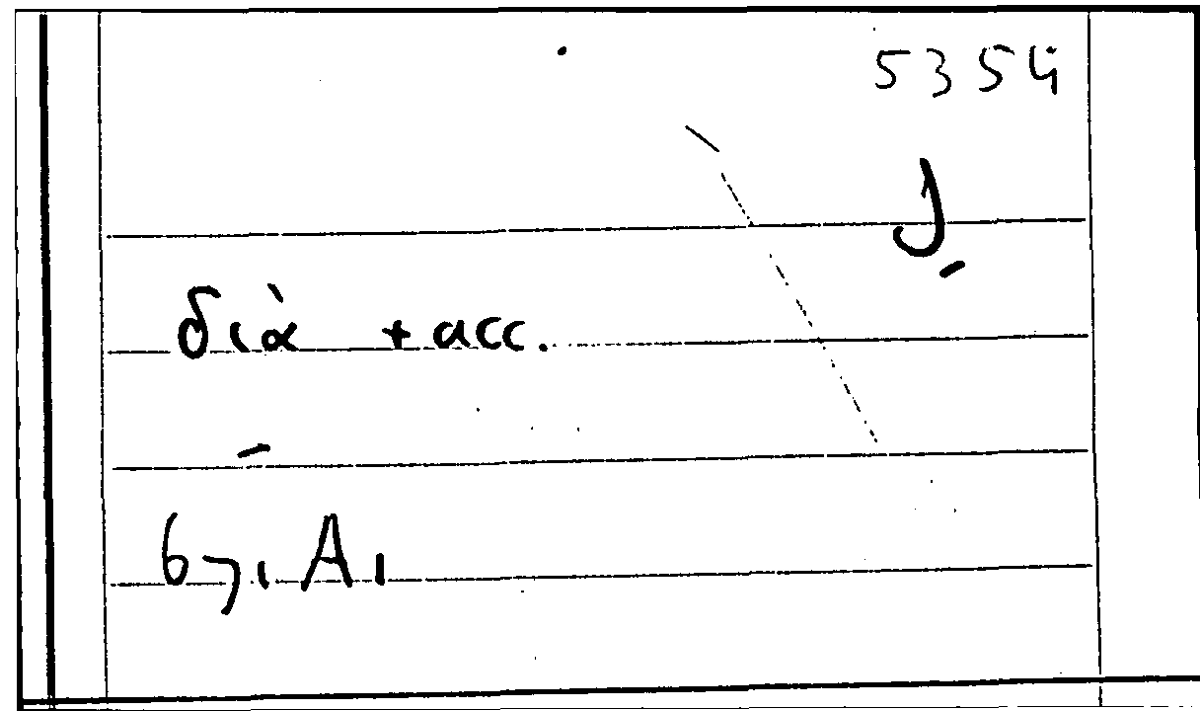 5354
لِ
διὰ + acc.
67, A1